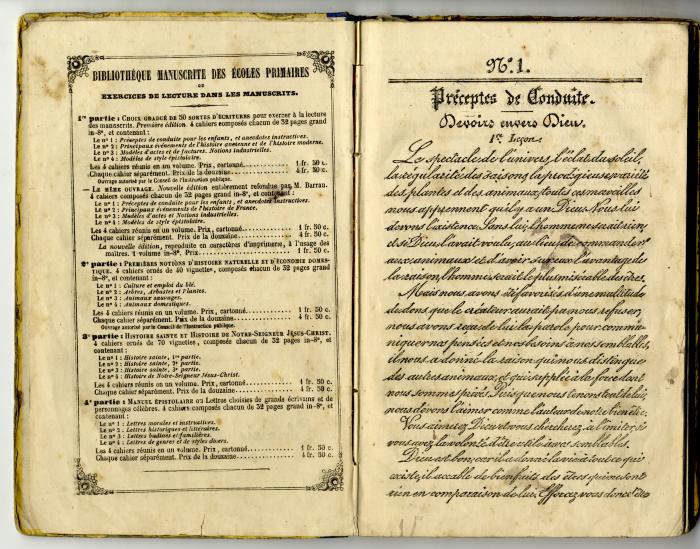 BIBLIOTHÈQUE MANUSCRITE DES ÉCOLES PRIMAIRES
OU
EXERCICES DE LECTURE DANS LES MANUSCRITS.
1re partie : CHOIX GRADUÉ DE 50 SORTES D'ÉCRITURES pour exercer à la lecture
des manuscrits. Première édition. 4 cahiers composés chacun de 32 pages grand
in-8°, et contenant :
Le n° 1 : Préceptes de conduite pour les enfants, et anecdotes instructives.
Le n° 2 : Principaux événements de l'histoire ancienne et de l'histoire moderne.
Le n° 3 : Modèles d'actes et de factures. Notions industrielles.
Le n° 4 : Modèles de style épistolaire.
Les 4 cahiers réunis en un volume. Prix, cartonné 1 fr. 50 c.
Chaque cahier séparément. Prix de la douzaine 4 fr. 50 c.
Ouvrage autorisé par le Conseil de l'Instruction publique.
— LE MÊME OUVRAGE. Nouvelle édition entièrement refondue par M. Barrau.
4 cahiers composés chacun de 32 pages grand in-8°, et contenant :
Le n° 1 : Préceptes de conduite pour les enfants, et anecdotes instructives.
Le n° 2 : Principaux événements de l'histoire de France.
Le n° 3 : Modèles d'actes et Notions industrielles.
Le n° 4 : Modèles de style épistolaire.
Les 4 cahiers réunis en un volume. Prix, cartonné 1 fr. 50 c.
Chaque cahier séparément. Prix de la douzaine 4 fr. 50 c.
La nouvelle édition, reproduite en caractères d'imprimerie, à l'usage des
maîtres. 1 volume in-8°. Prix 1 fr. 50 c.
2e partie : PREMIÈRES NOTIONS D'HISTOIRE NATURELLE ET D'ÉCONOMIE DOMES-
TIQUE. 4 cahiers ornés de 40 vignettes, composés chacun de 32 pages grand
in-8°, et contenant :
Le n° 1 : Culture et emploi du blé.
Le n° 2 : Arbres, Arbustes et Plantes.
Le n° 3 : Animaux sauvages.
Le n° 4 : Animaux domestiques.
Les 4 cahiers réunis en un volume. Prix, cartonné 1 fr. 50 c.
Chaque cahier séparément. Prix de la douzaine 4 fr. 50 c.
Ouvrage autorisé par le Conseil de l'Instruction publique.
3e partie : HISTOIRE SAINTE ET HISTOIRE DE NOTRE-SEIGNEUR JÉSUS-CHRIST.
4 cahiers ornés de 70 vignettes, composés chacun de 32 pages in-8°, et
contenant :
Le n° 1 : Histoire sainte, 1re partie.
Le n° 2 : Histoire sainte, 2e partie.
Le n° 3 : Histoire sainte, 3e partie.
Le n° 4 : Histoire de Notre-Seigneur Jésus-Christ.
Les 4 cahiers réunis en un volume. Prix, cartonné 1 fr. 50 c.
Chaque cahier séparément. Prix de la douzaine 4 fr. 50 c.
4e partie : MANUEL ÉPISTOLAIRE ou Lettres choisies de grands écrivains et de
personnages célèbres. 4 cahiers composés chacun de 32 pages grand in-8°, et
contenant :
Le n° 1 : Lettres morales et instructives.
Le n° 2 : Lettres historiques et littéraires.
Le n° 3 : Lettres badines et familières.
Le n° 4 : Lettres de genres et de styles divers.
Les 4 cahiers réunis en un volume. Prix, cartonné 1 fr. 50 c.
Chaque cahier séparément. Prix de la douzaine 4 fr. 50 c.
N° 1.
Préceptes de Conduite.
Devoirs envers Dieu.
1re Leçon.
Le spectacle de l'univers, l'éclat du soleil,
la régularité des saisons, la prodigieuse variété
des plantes et des animaux, toutes ces merveilles
nous apprennent qu'il y a un Dieu. Nous lui
devons l'existence. Sans lui, l'homme ne serait rien,
et si Dieu l'avait voulu, au lieu de commander
aux animaux et d'avoir sur eux l'avantage de
la raison, l'homme serait le plus misérable des êtres.
Mais nous avons été favorisés d'une multitude
de dons que le créateur aurait pu nous refuser;
nous avons reçu de lui la parole pour commu-
niquer nos pensées et nos besoins à nos semblables,
il nous a donné la raison qui nous distingue
des autres animaux, et qui supplée à la force dont
nous sommes privés. Puisque nous tenons tout de lui,
nous devons l'aimer comme l'auteur de notre bien être.
Vous aimerez Dieu et vous chercherez à l'imiter, si
vous avez la volonté d'être utile à vos semblables.
Dieu est bon, car il a donné la vie à tout ce qui
existe, il accable de bienfaits des êtres qui ne sont
rien en comparaison de lui. Efforcez vous donc d'être